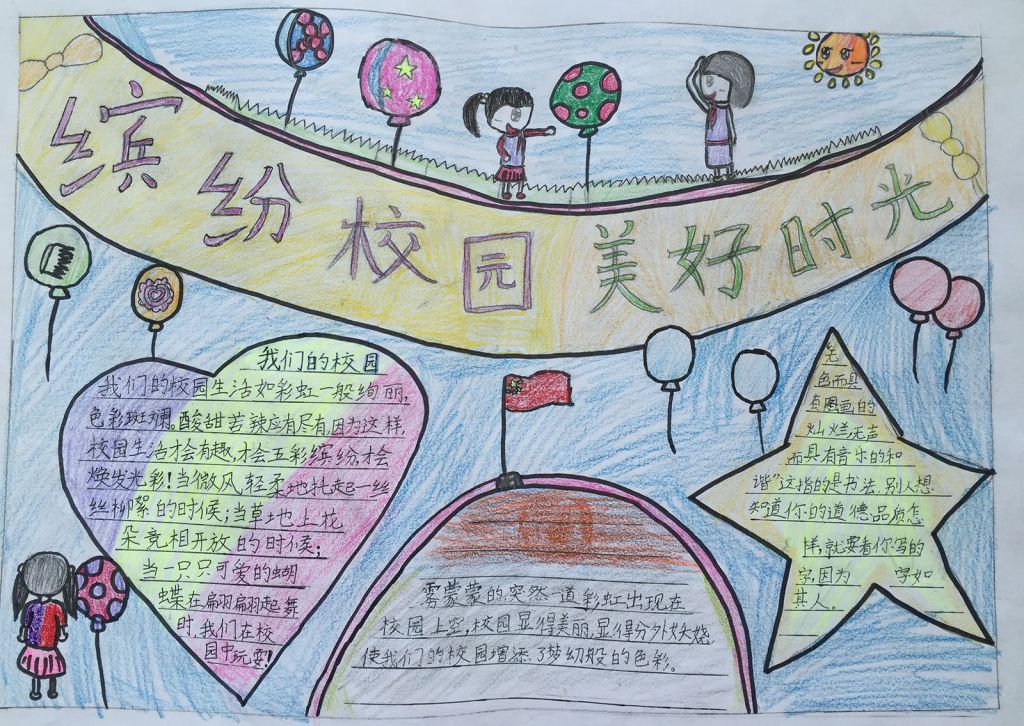 缤纷校园美好时光
我们的校园
我们的校园生活如彩虹一般绚丽,
色彩斑斓。酸甜苦辣应有尽有,因为这样,
校园生活才会有趣,才会五彩缤纷,才会
焕发光彩!当微风轻柔地托起一丝
丝柳絮的时候;当草地上花
朵竞相开放的时候;
当一只只可爱的蝴
蝶在扁羽扁羽起舞
时,我们在校
园中玩耍!
雾蒙蒙的突然一道彩虹出现在
校园上空,校园显得美丽,显得分外妖娆,
使我们的校园增添了梦幻般的色彩。
无
色而具
有图画的
灿烂,无声
而具有音乐的和
谐”这指的是书法.别人想
知道你的道德品质怎
样,就要看你写的
字,因为 字如
其人。